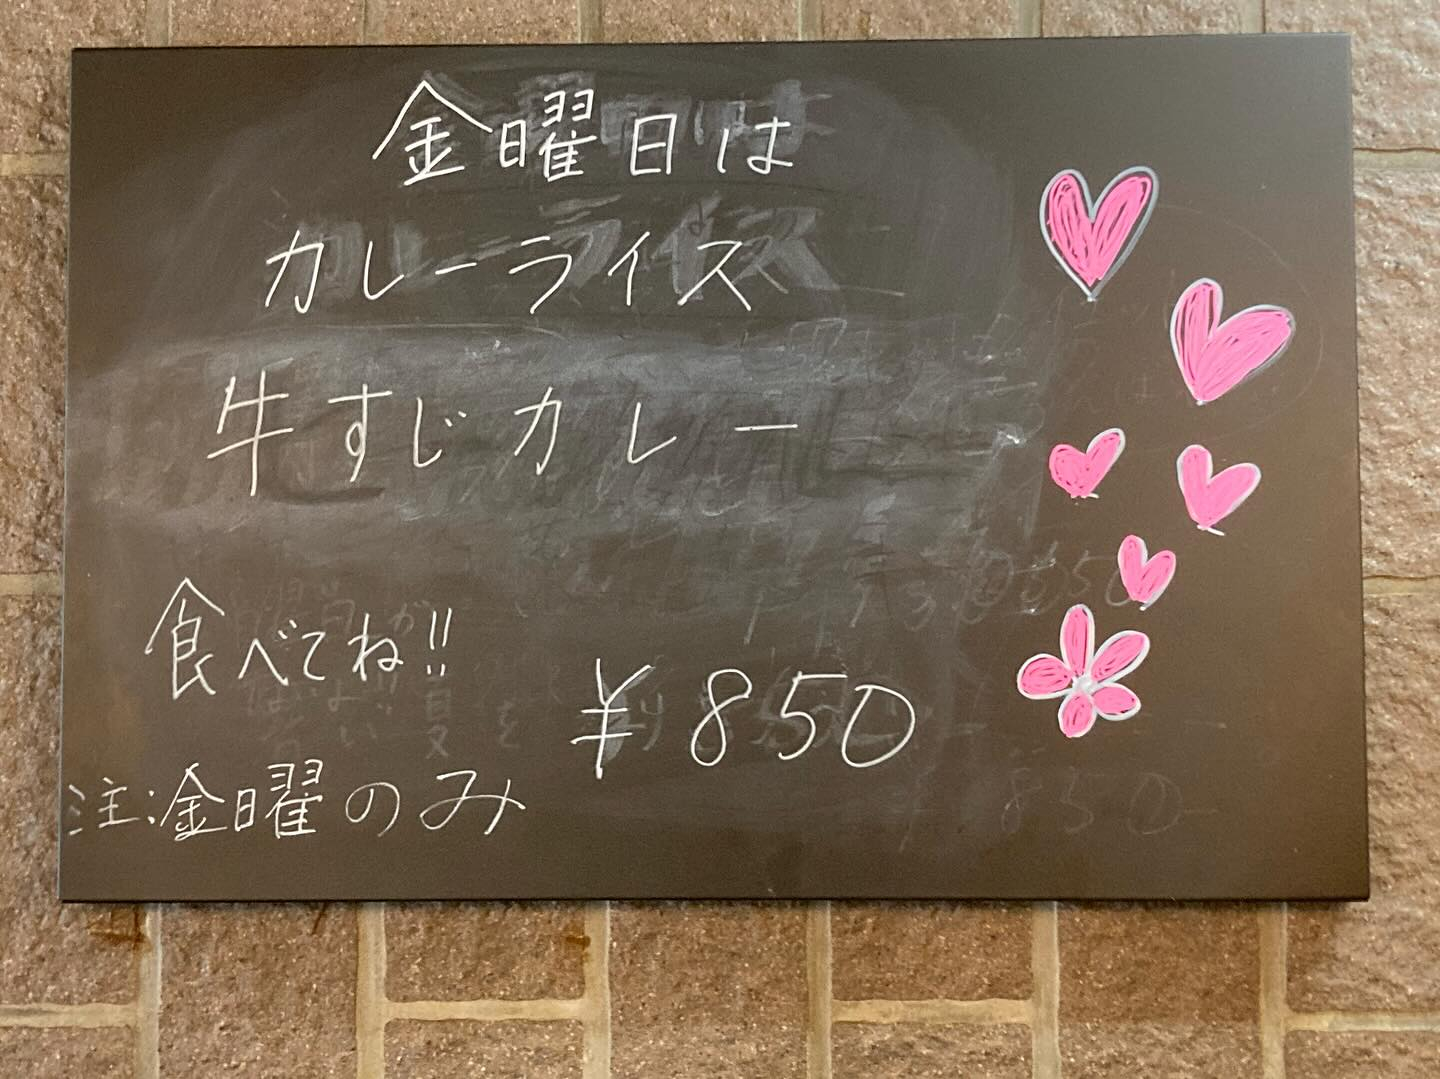 金曜日は
カレーライス
牛すじカレー
食べてね!!
¥850
注:金曜のみ